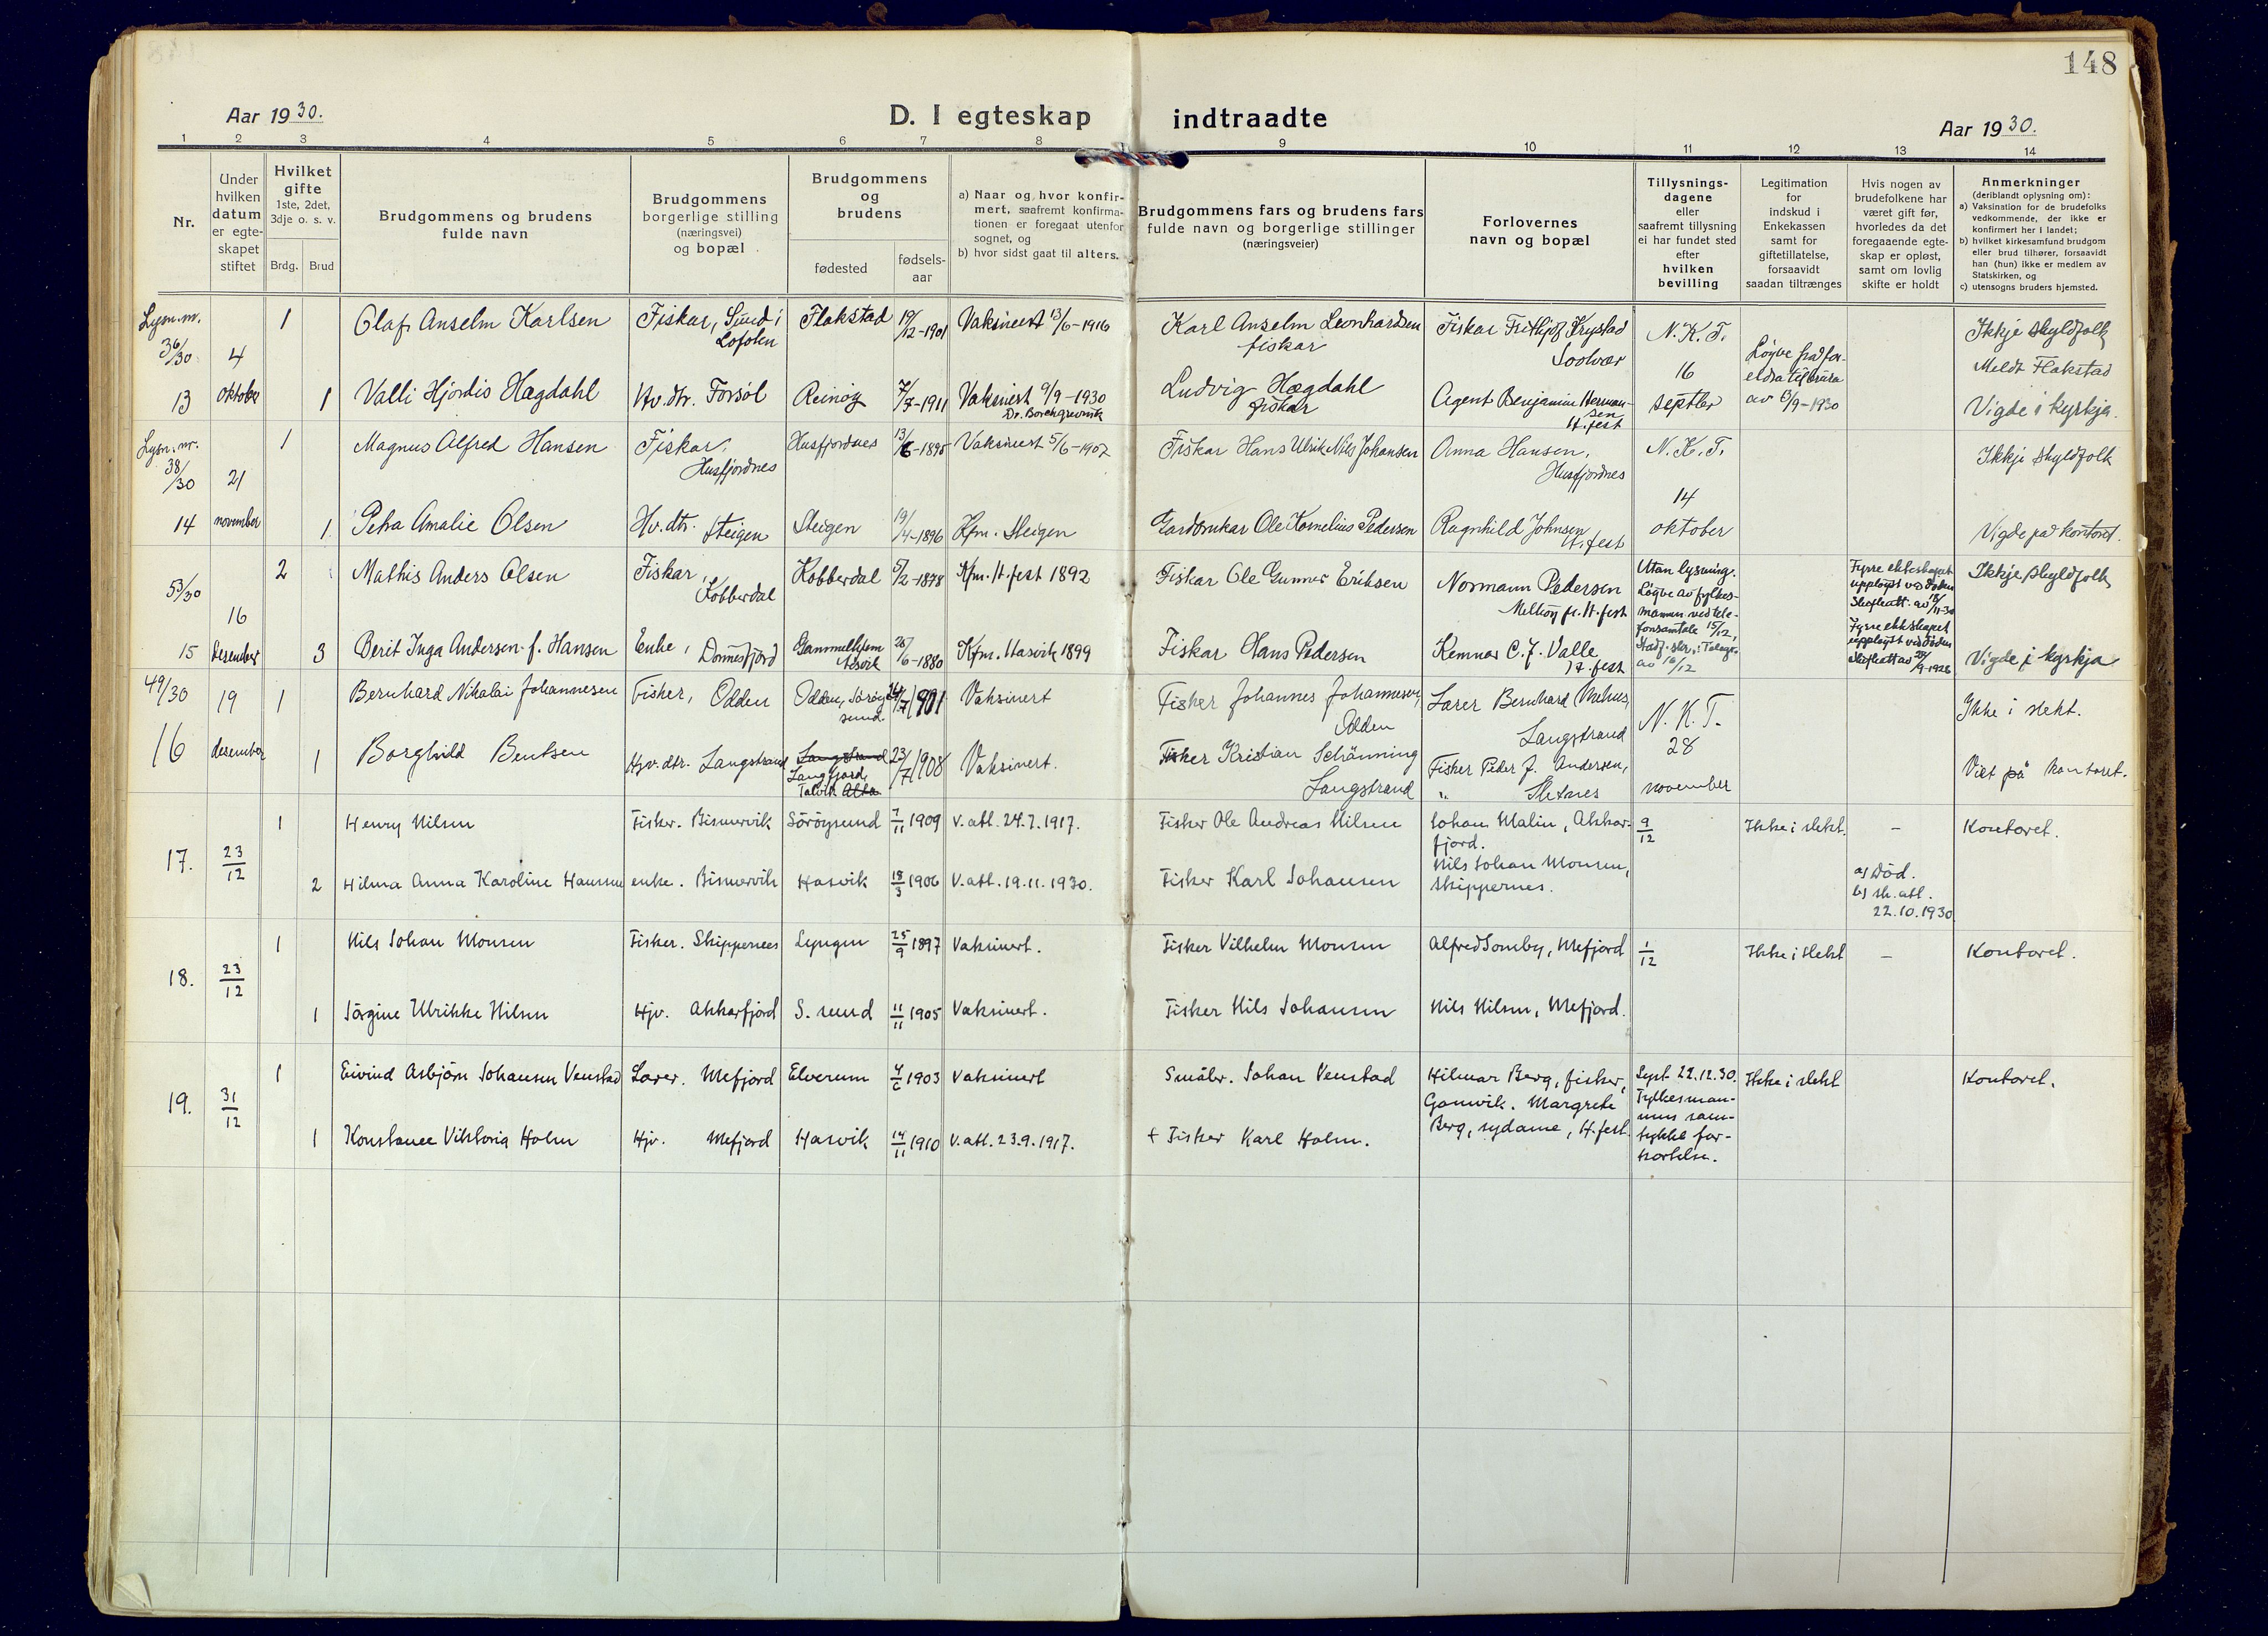 148
Aar 1930.
D. I egteskap indtraadte
Aar 1930.
1 2 3 4 5 6 7 8 9 10 11 12 13 14
Nr.
Under hvilken datum er egteskapet stiftet
Hvilket gifte 1ste, 2det, 3dje o. s. v.
Brdg. Brud
Brudgommens og brudens fulde navn
Brudgommens borgerlige stilling (næringsvei) og bopæl
Brudgommens og brudens
fødested
fødsels-aar
a) Naar og hvor konfirmert, saafremt konfirmationen er foregaat utenfor sognet, og
b) hvor sidst gaat til alters.
Brudgommens fars og brudens fars fulde navn og borgerlige stillinger (næringsveier)
Forlovernes navn og bopæl
Tillysningsdagene eller saafremt tillysning ei har fundet sted efter hvilken bevilling
Legitimation for indskud i Enkekassen samt for giftetillatelse, forsaavidt saadan tiltrænges
Hvis nogen av brudefolkene har været gift før, hvorledes da det foregaaende egteskap er opløst, samt om lovlig skifte er holdt
Anmerkninger (deriblandt oplysning om):
a) Vaksination for de brudefolks vedkommende, der ikke er konfirmert her i landet;
b) hvilket kirkesamfund brudgom eller brud tilhører, forsaavidt han (hun) ikke er medlem av Statskirken, og
c) utensogns bruders hjemsted.
Lysn. nr. 36/30 4 1 Olaf Anselm Karlsen Fiskar, Sund i Lofoten Flakstad 19/12-1901 Vaksinert 13/6-1916 Karl Anselm Leonhardsen fiskar Fiskar Fritkjof Krystad Soolvær N. K. T. 16 Løgve frå foreldra til brura av 13/9-1930 Ikkje skyldfolk Meldt Flakstad
13 oktober 1 Valli Hjørdis Hægdahl Hv. dtr. Forsøl Reinøy 7/7-1911 Vaksinert 9/9-1930 Dr. Borchgrevink Ludvig Hægdahl fiskar Agent Benjamin Hermansen H.fest septber Vigde i kyrkja.
Lysn. nr. 38/30 21 1 Magnus Alfred Hansen Fiskar, Husfjordnes Husfjordnes 13/6-1895 Vaksinert 5/6-1907 Fiskar Hans Ulrik Nils Johansen Anna Hansen, Husfjordnes N. K. T. 14 Ikkje skyldfolk
14 november 1 Petra Amalie Olsen Hv. dtr. Steigen Steigen 19/4-1896 Kfm. Steigen Gardbrukar Ole Kornelius Pedersen Ragnhild Johnsen H.fest oktober Vigde på kontoret.
53/30 16 2 Mathis Anders Olsen Fiskar, Kobberdal Kobberdal 5/2-1878 Kfm. H.fest 1892 Fiskar Ole Gunner Eriksen Normann Pedersen Melkøy pr. H.fest Utan lysning. Løgve av fylkesmannen ved telefonsamtale 15/12, Stadf. skr. i Telegr. av 16/12 Fyrre ekteskapet uppløyst ved døden Skifteatt. av 18/11-30 Ikkje skyldfolk
15 desember 3 Berit Inga Andersen f. Hansen Enke, Dønnesfjord Gammelhjem Hasvik 26/6-1880 Kfm. Hasvik 1899 Fiskar Hans Pedersen Kemner C. J. Valle H.fest Fyrre ekteskapet uppløyst ved døden Skifteatt av 24/9-1926 Vigde i kyrkja
49/30 19 1 Bernhard Nikolai Johannesen Fisker, Odden Odden, Sørøysund. 24/7 1901 Vaksinert Fisker Johannes Johannesen, Odden Lærer Bernhard Mehus, Langstrand N. K. T. 28 Ikke i slekt.
16 desember 1 Borghild Bentsen Hjv. dtr. Langstrand Langstrand Langfjord, Talvik Alta 23/7 1908 Vaksinert. Fisker Kristian Schånning Langstrand Fisker Peder J. Andersen, " Sletnes november Viet på kontoret.
17. 23/12 1 Henry Nilsen Fisker. Bismervik Sörøysund 7/11 1909 V. att. 24.7.1917. Fisker Ole Andreas Nilsen Johan Malin, Akkarfjord. 9/12 Ikke i slekt. – Kontoret.
2 Hilma Anna Karoline Hansen enke. Bismervik Hasvik 18/3 1906 V. att. 19.11.1930. Fisker Karl Johansen Nils Johan Monsen, Skippernes. a) Død. b) sk. att. 22.10.1930
18. 23/12 1 Nils Johan Monsen Fisker. Skippernes Lyngen 25/9 1897 Vaksinert. Fisker Vilhelm Monsen Alfred Somby, Mefjord 1/12 Ikke i slekt – Kontoret.
1 Jörgine Ulrikke Nilsen Hjv. Akkarfjord S. sund 11/11 1905 Vaksinert. Fisker Nils Johansen Nils Nilsen, Mefjord.
19. 31/12 1 Eivind Asbjörn Johansen Venstad Lærer. Mefjord Elverum 4/6 1903 Vaksinert Småbr. Johan Venstad Hilmar Berg, fisker, Gamvik. Margrete Berg, sydame, H.fest. Lyst 22.12.30. Fylkesmannens samtykke forkortelse. Ikke i slekt Kontoret.
1 Konstance Viktoria Holm Hjv. Mefjord Hasvik 14/11 1910 V. att. 23.9.1917. + Fisker Karl Holm.